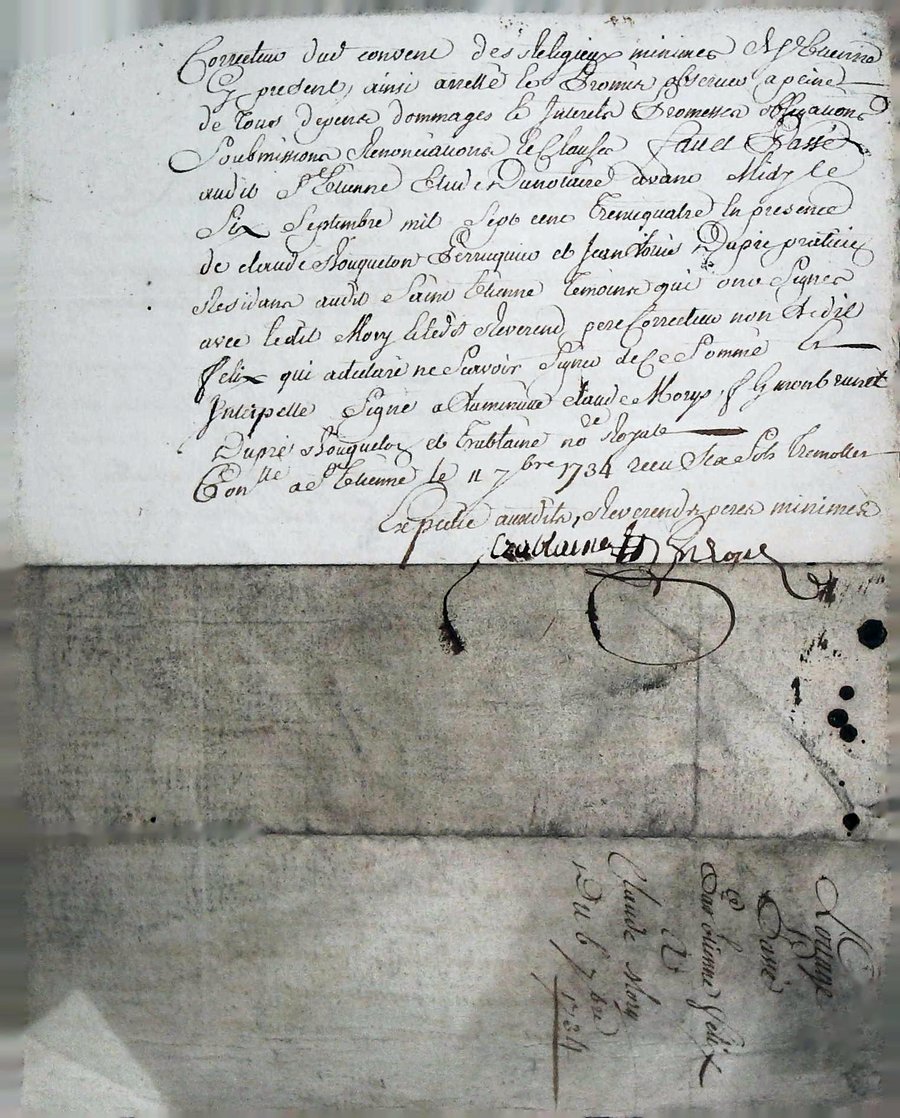 Correcteur dud convent des Religieux minimes de St Etienne
Cy present, ainsi arretté et Promis observer a peine
de tous depens dommages et Interets Promesses obligations
Soubmissions Renonciations et Clauses fait et Passé
audit St Etienne Etude du notaire avant Midy le
Six Septembre mil Sept cent trente quatre En presence
de claude Rouqueton Perruquier et Jean Louis Dupré praticien
Residans audit Saint Etienne temoins qui ont Signes
avec ledit Mory et ledit Reverend pere Correcteur non ledit
felix qui a declaré ne Scavoir Signer de Ce Sommé Et
Interpellé Signé a la minutte claude Mory, f G monbrunet
Dupré Rouqueton et Crublaine nore Royal
Conlle a St Etienne le 11 7bre 1734 receu Six Sols
Expedié auxdits Reverends peres minimes
Crublaine
Louage
Passé
Par etienne felix
A
Claude Mory
Du 6 7bre
1734